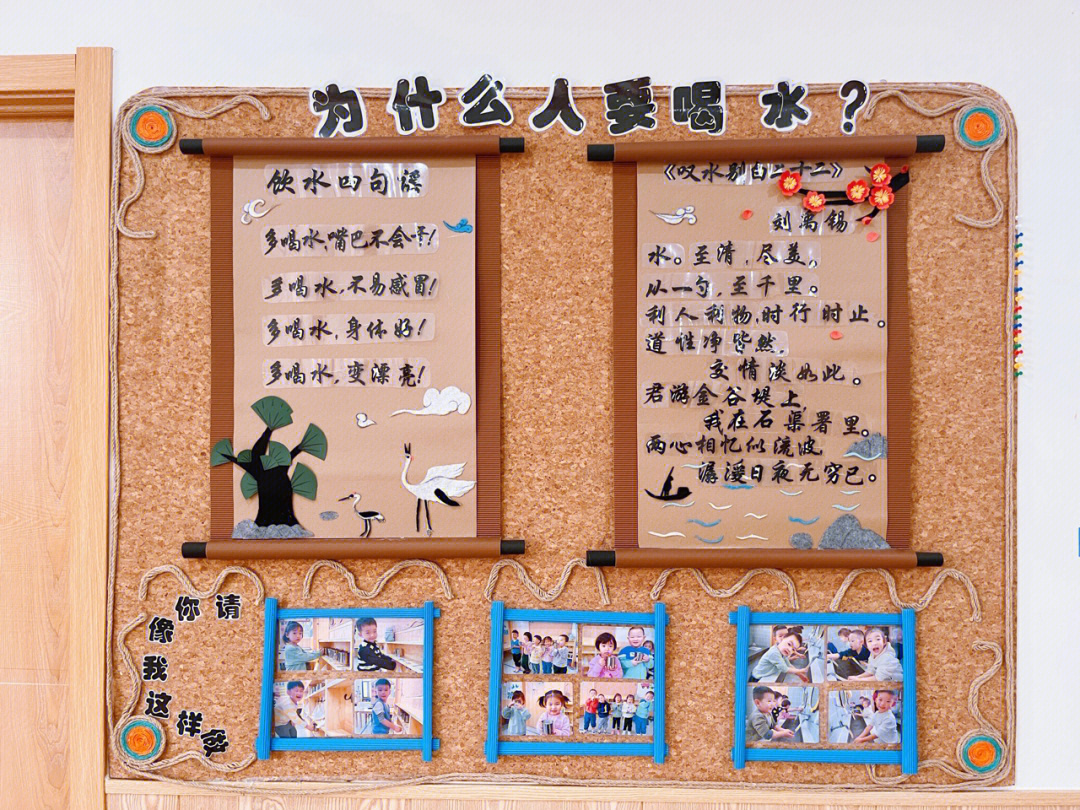 为什么人要喝水?
饮水四句谣
多喝水,嘴巴不会干!
多喝水,不易感冒!
多喝水,身体好!
多喝水,变漂亮!
《叹水别白二十二》
刘禹锡
水。至清,尽美。
从一勺,至千里。
利人利物,时行时止。
道性净皆然,
交情淡如此。
君游金谷堤上,
我在石渠署里。
两心相忆似流波,
潺湲日夜无穷已。
请你像我这样做